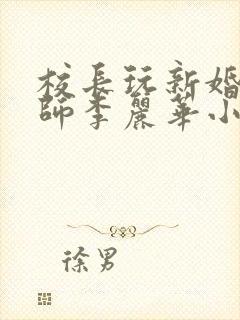 校長玩新婚
師李麗華小
徐男